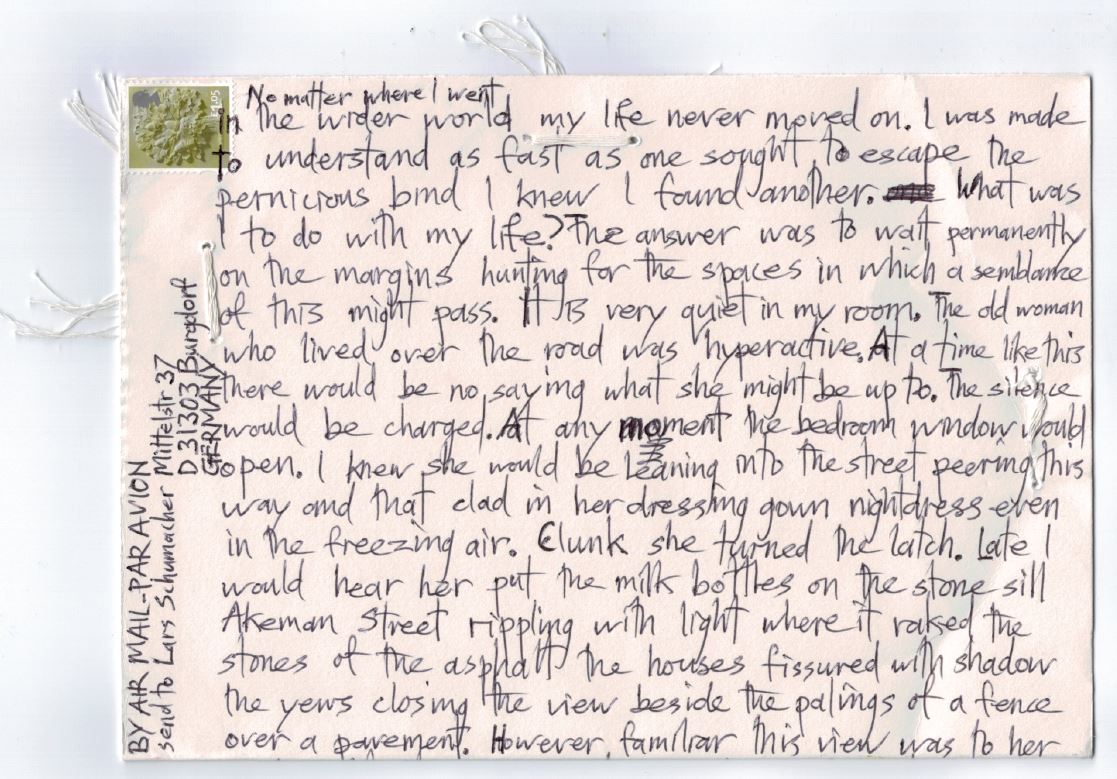 No matter where I went
in the wider world my life never moved on. I was made
to understand as fast as one sought to escape the
pernicious bind I knew I found another. What was
I to do with my life? The answer was to wait permanently
on the margins hunting for the spaces in which a semblance
of this might pass. It is very quiet in my room. The old woman
who lived over the road was hyperactive. At a time like this
there would be no saying what she might be up to. The silence
would be charged. At any moment the bedroom window would
open. I knew she would be leaning into the street peering this
way and that clad in her dressing gown nightdress even
in the freezing air. Clunk she turned the latch. Late I
would hear her put the milk bottles on the stone sill
Akeman Street rippling with light where it raked the
stones of the asphalt the houses fissured with shadow
the yews closing the view beside the palings of a fence
over a pavement. However familiar this view was to her
BY AIR MAIL-PAR AVION
send to Lars Schumacher Mittelstr 37
D 31303 Burgdorf
GERMANY
£1.05